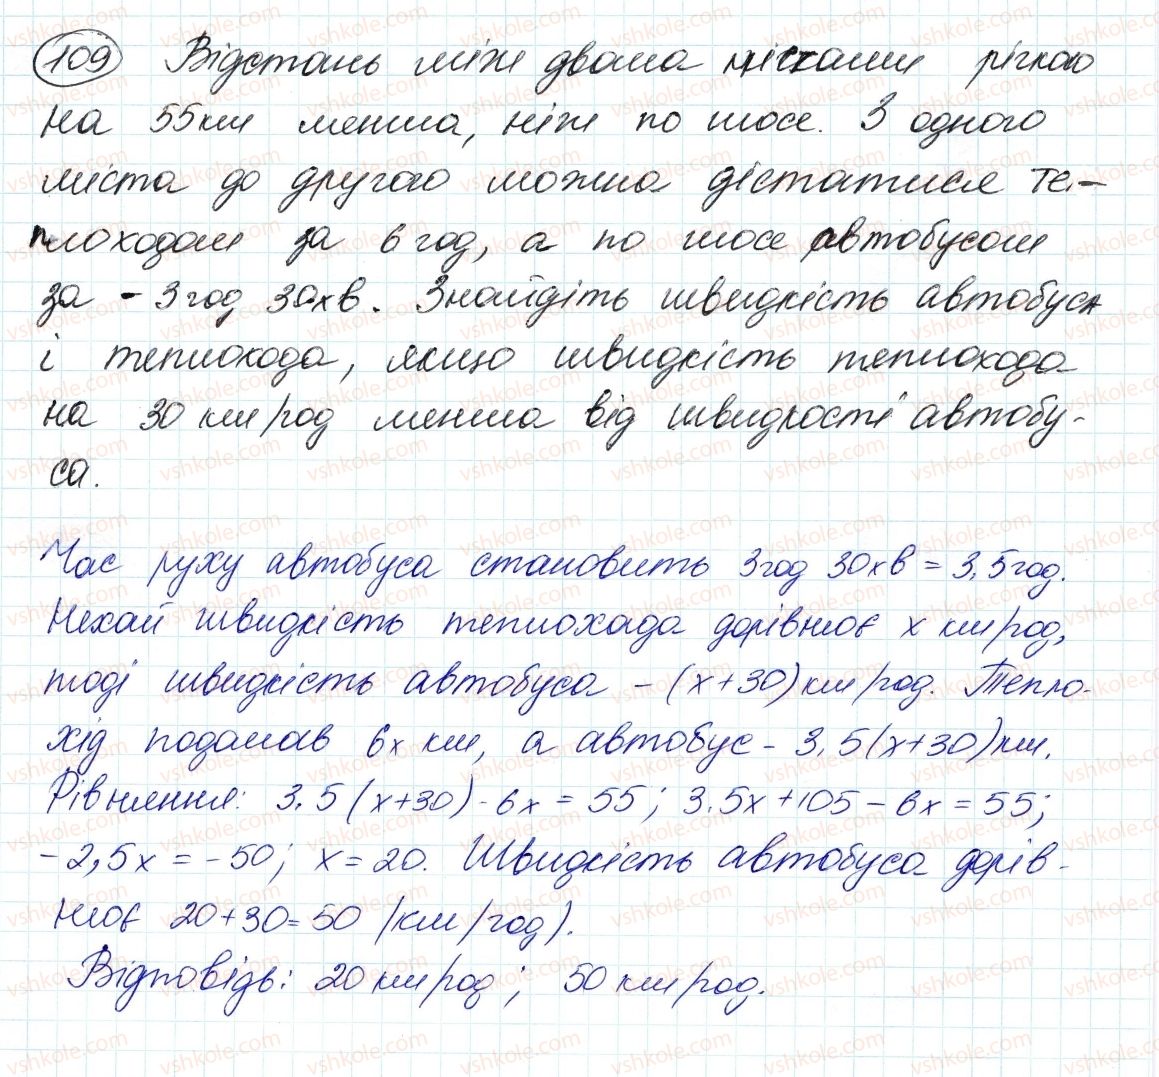 109 Відстань між двома містами річкою
на 55 км менша, ніж по шосе. З одного
міста до другого можна дістатися те-
плоходом за 6 год, а по шосе автобусом
за - 3 год 30 хв. Знайдіть швидкість автобуса
і теплохода, якщо швидкість теплохода
на 30 км/год менша від швидкості автобу-
са.
Час руху автобуса становить 3 год 30 хв = 3,5 год.
Нехай швидкість теплохода дорівнює x км/год,
тоді швидкість автобуса - (x+30) км/год. Тепло-
хід подолав 6x км, а автобус - 3,5(x+30) км.
Рівняння: 3,5(x+30) - 6x = 55; 3,5x + 105 - 6x = 55;
-2,5x = -50; x = 20. Швидкість автобуса дорів-
нює 20 + 30 = 50 (км/год).
Відповідь: 20 км/год; 50 км/год.